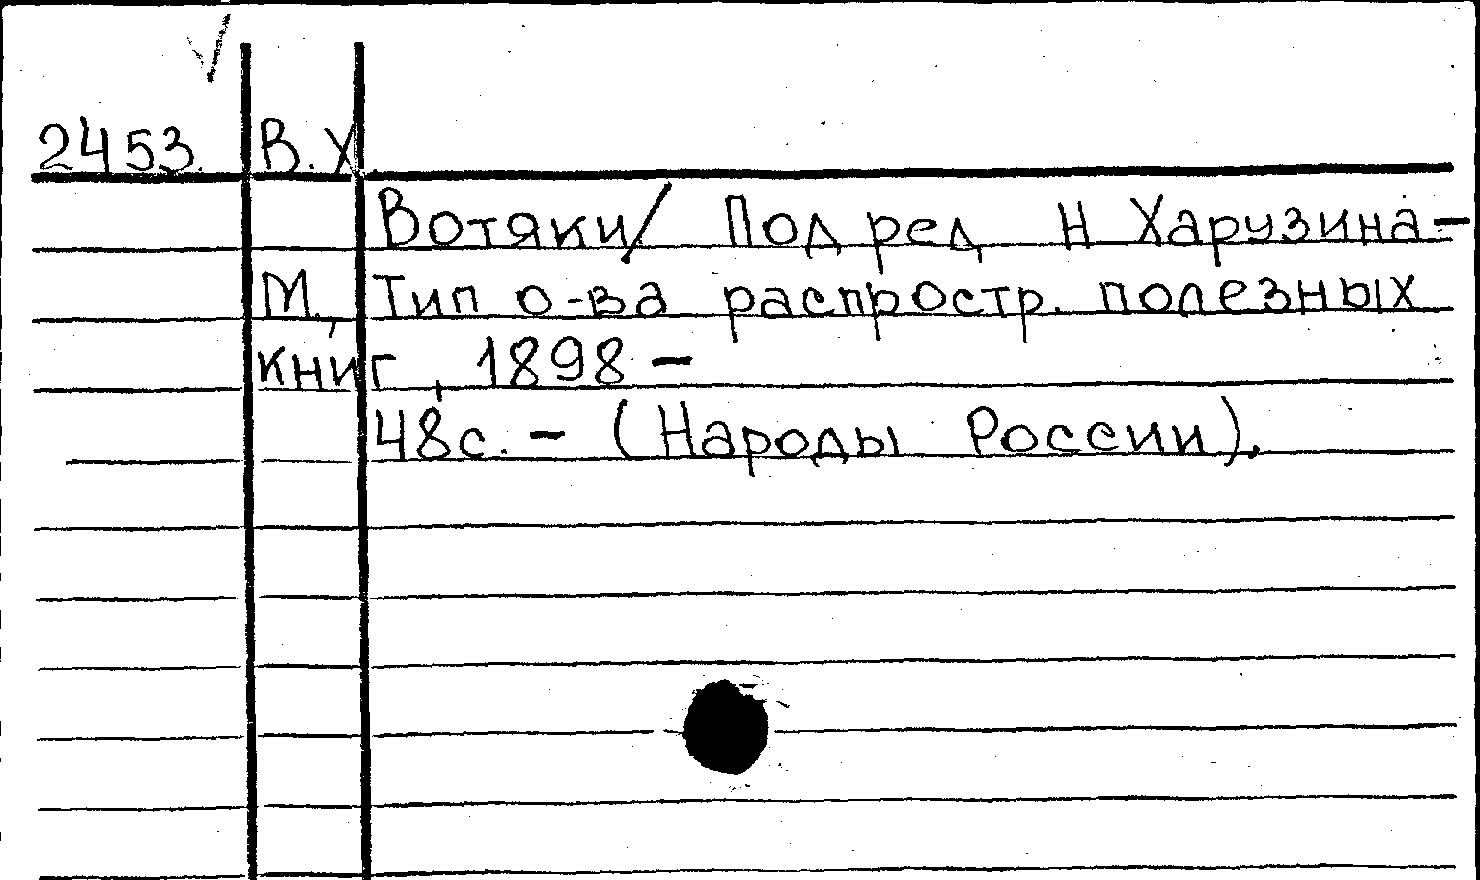 2453. В.Х.
Вотяки/ Под ред Н Харузина-
М., Тип о-ва распростр. полезных
книг, 1898 -
48с. - (Народы России).